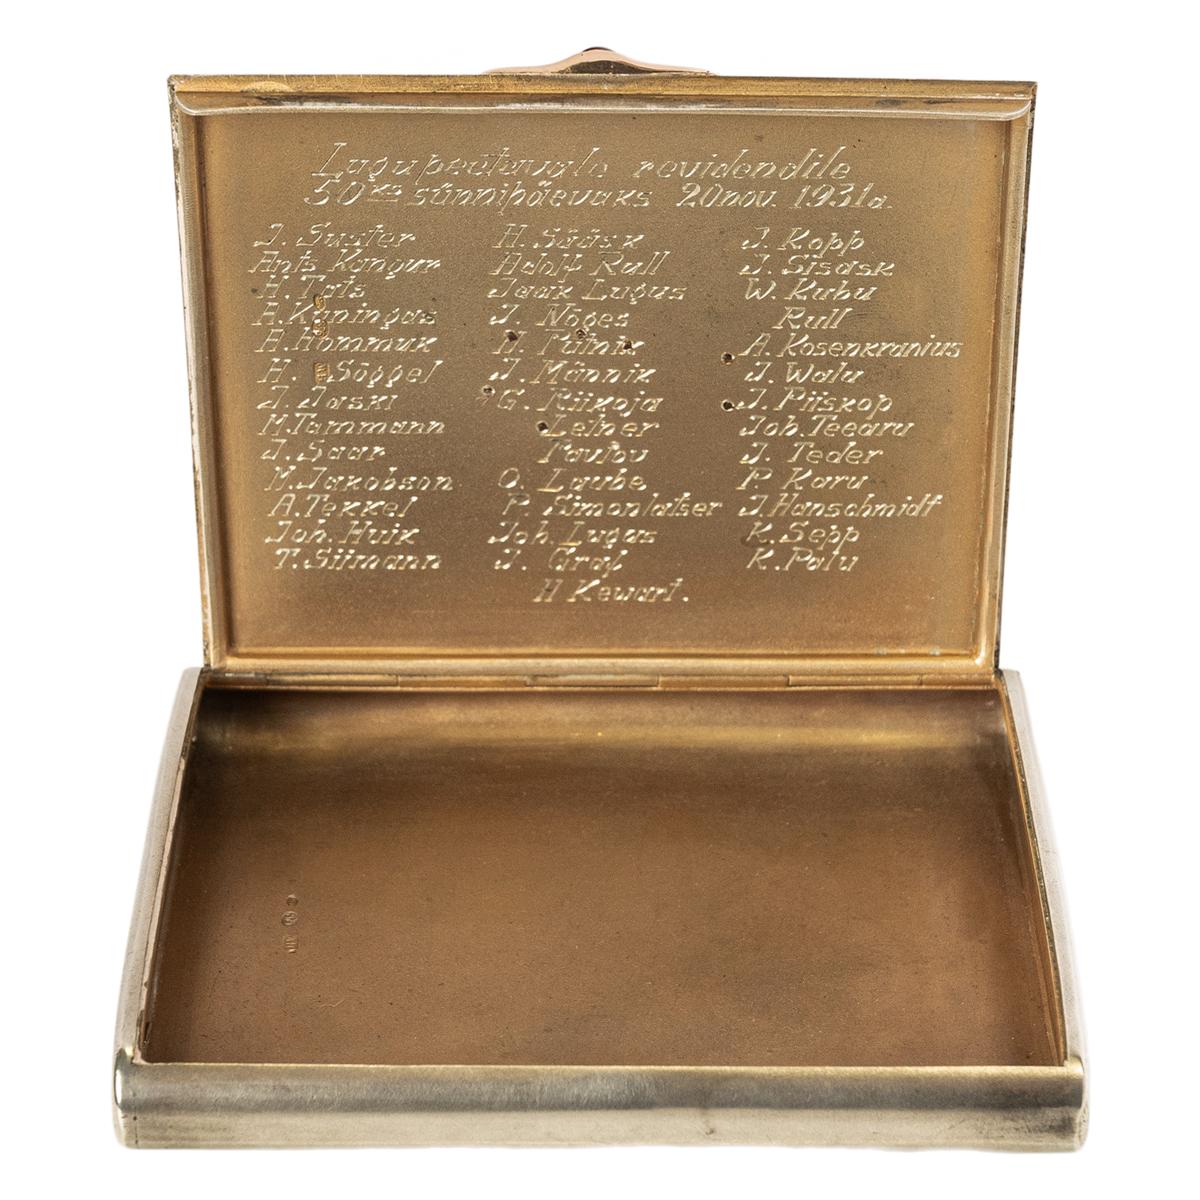 Lugupeetavale revidendile
50ks sünnipäevaks 20 nov. 1931 a.
J. Suster
Ants Kangur
H. Tats
A. Kuningas
A. Hommuk
H. Söggel
J. Jaski
M. Tammann
J. Saar
M. Jakobson
A. Tekkel
Joh. Huik
T. Siimann
H. Sääsk
Adolf Rull
Jaak Lugus
J. Nõges
H. Pütnik
J. Männik
G. Riikoja
Leiner
O. Laube
P. Simonlatser
Joh. Lugus
J. Graf
H Kewart.
J. Kopp
J. Sisask
W. Kubu
Rull
A. Rosenkranius
J. Walu
J. Piiskop
Joh. Teearu
J. Teder
P. Karu
J. Hanschmidt
K. Sepp
K. Palu